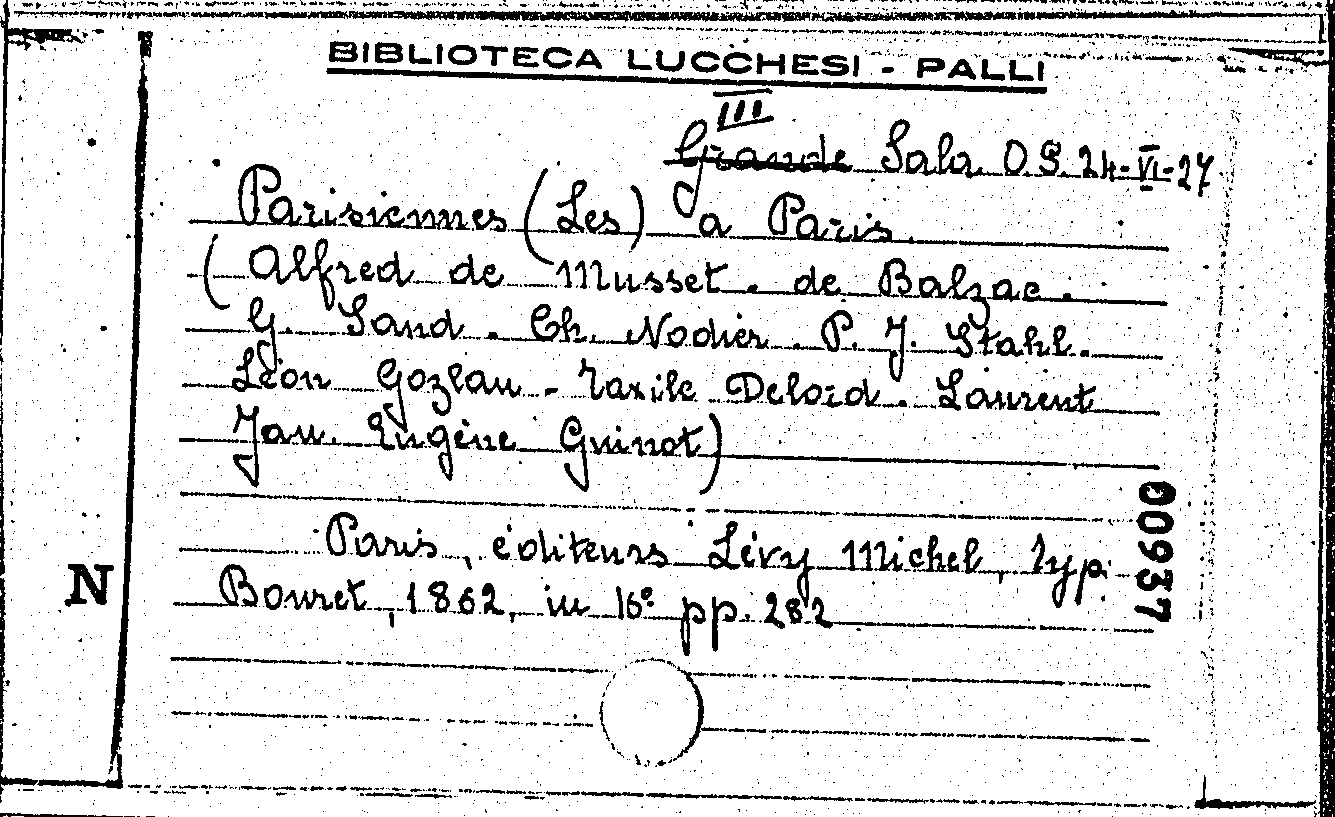 BIBLIOTECA LUCCHESI - PALLI
III
Grande Sala O.S. 24-VI-27
Parisiennes (Les) a Paris.
(Alfred de Musset. de Balzac.
G. Sand. Ch. Nodier. P. J. Stahl.
Léon Gozlan - Taxile Delord. Laurent
Jan. Eugène Guinot)
Paris, éditeurs Lévy Michel, typ.
Bouret, 1862, in 16° pp. 282
N
00937